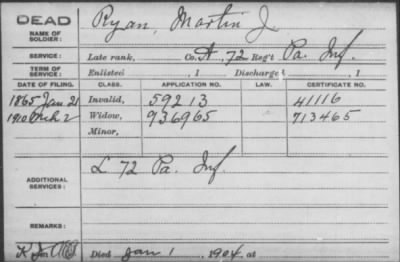 DEAD
NAME OF SOLDIER: Ryan, Martin J.
SERVICE: Late rank, Co. A, 72 Reg't Pa. Inf.
TERM OF SERVICE: Enlisted , 1 Discharged , 1
DATE OF FILING. CLASS. APPLICATION NO. LAW. CERTIFICATE NO.
1865 Jan 21 Invalid, 59213 41116
1910 Mch 2 Widow, 936965 713465
Minor,
ADDITIONAL SERVICES: L 72 Pa. Inf.
REMARKS:
Died Jan 1, 1904, at